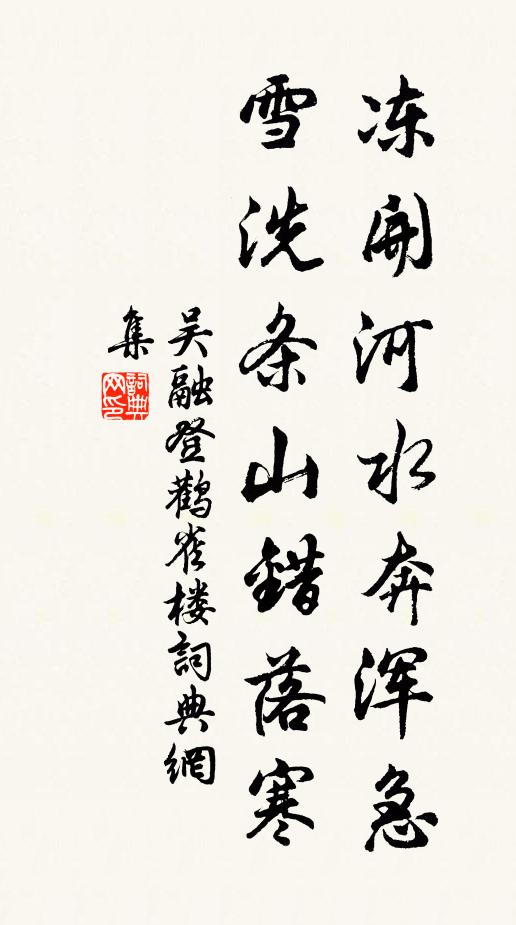 冻開河水奔浑急
雪洗条山錯落寒
吴融登鹳雀楼詞典網
集
詞典
网印